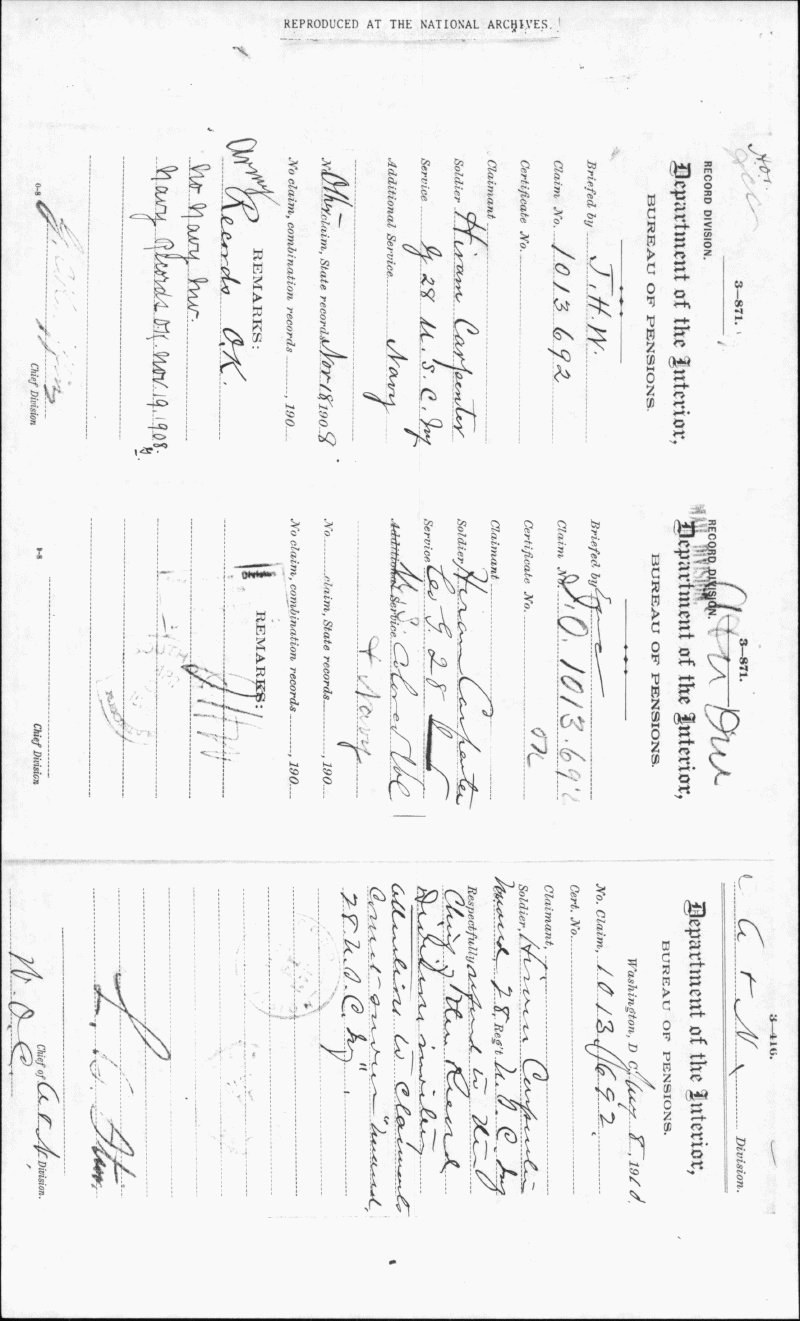 REPRODUCED AT THE NATIONAL ARCHIVES.
3—871.
RECORD DIVISION.
Department of the Interior,
BUREAU OF PENSIONS.
Briefed by J. H. W.
Claim No. 1013692
Certificate No.
Claimant
Soldier Hiram Carpenter
Service G 28 U. S. C. Inf
Additional Service Navy
No Other claim, State records Nov 18, 1908.
No claim, combination records , 190
REMARKS:
Army Records O.K.
No Navy Inv.
Navy Records Nov. 19, 1908.
0-8
Chief Division
3—871.
RECORD DIVISION.
Department of the Interior,
BUREAU OF PENSIONS.
Briefed by
Claim No. 1013.692
Certificate No.
Claimant
Soldier, Hiram Carpenter
Service Co G. 28
Additional Service Colored Vol
& Navy
No claim, State records , 190
No claim, combination records , 190
REMARKS:
0-8
Chief Division
3—416.
Division.
Department of the Interior,
BUREAU OF PENSIONS.
Washington, D. C., Aug 8, 191
No. Claim, 1013692.
Cert. No.
Claimant,
Soldier, Hiram Carpenter
Unassd, 28 Reg't U. S. C. Inf
Respectfully referred to the
Chief of the Record
Division inviting
attention to claimants
"Unassd,
28 U. S. C. Inf".
Chief of Division.